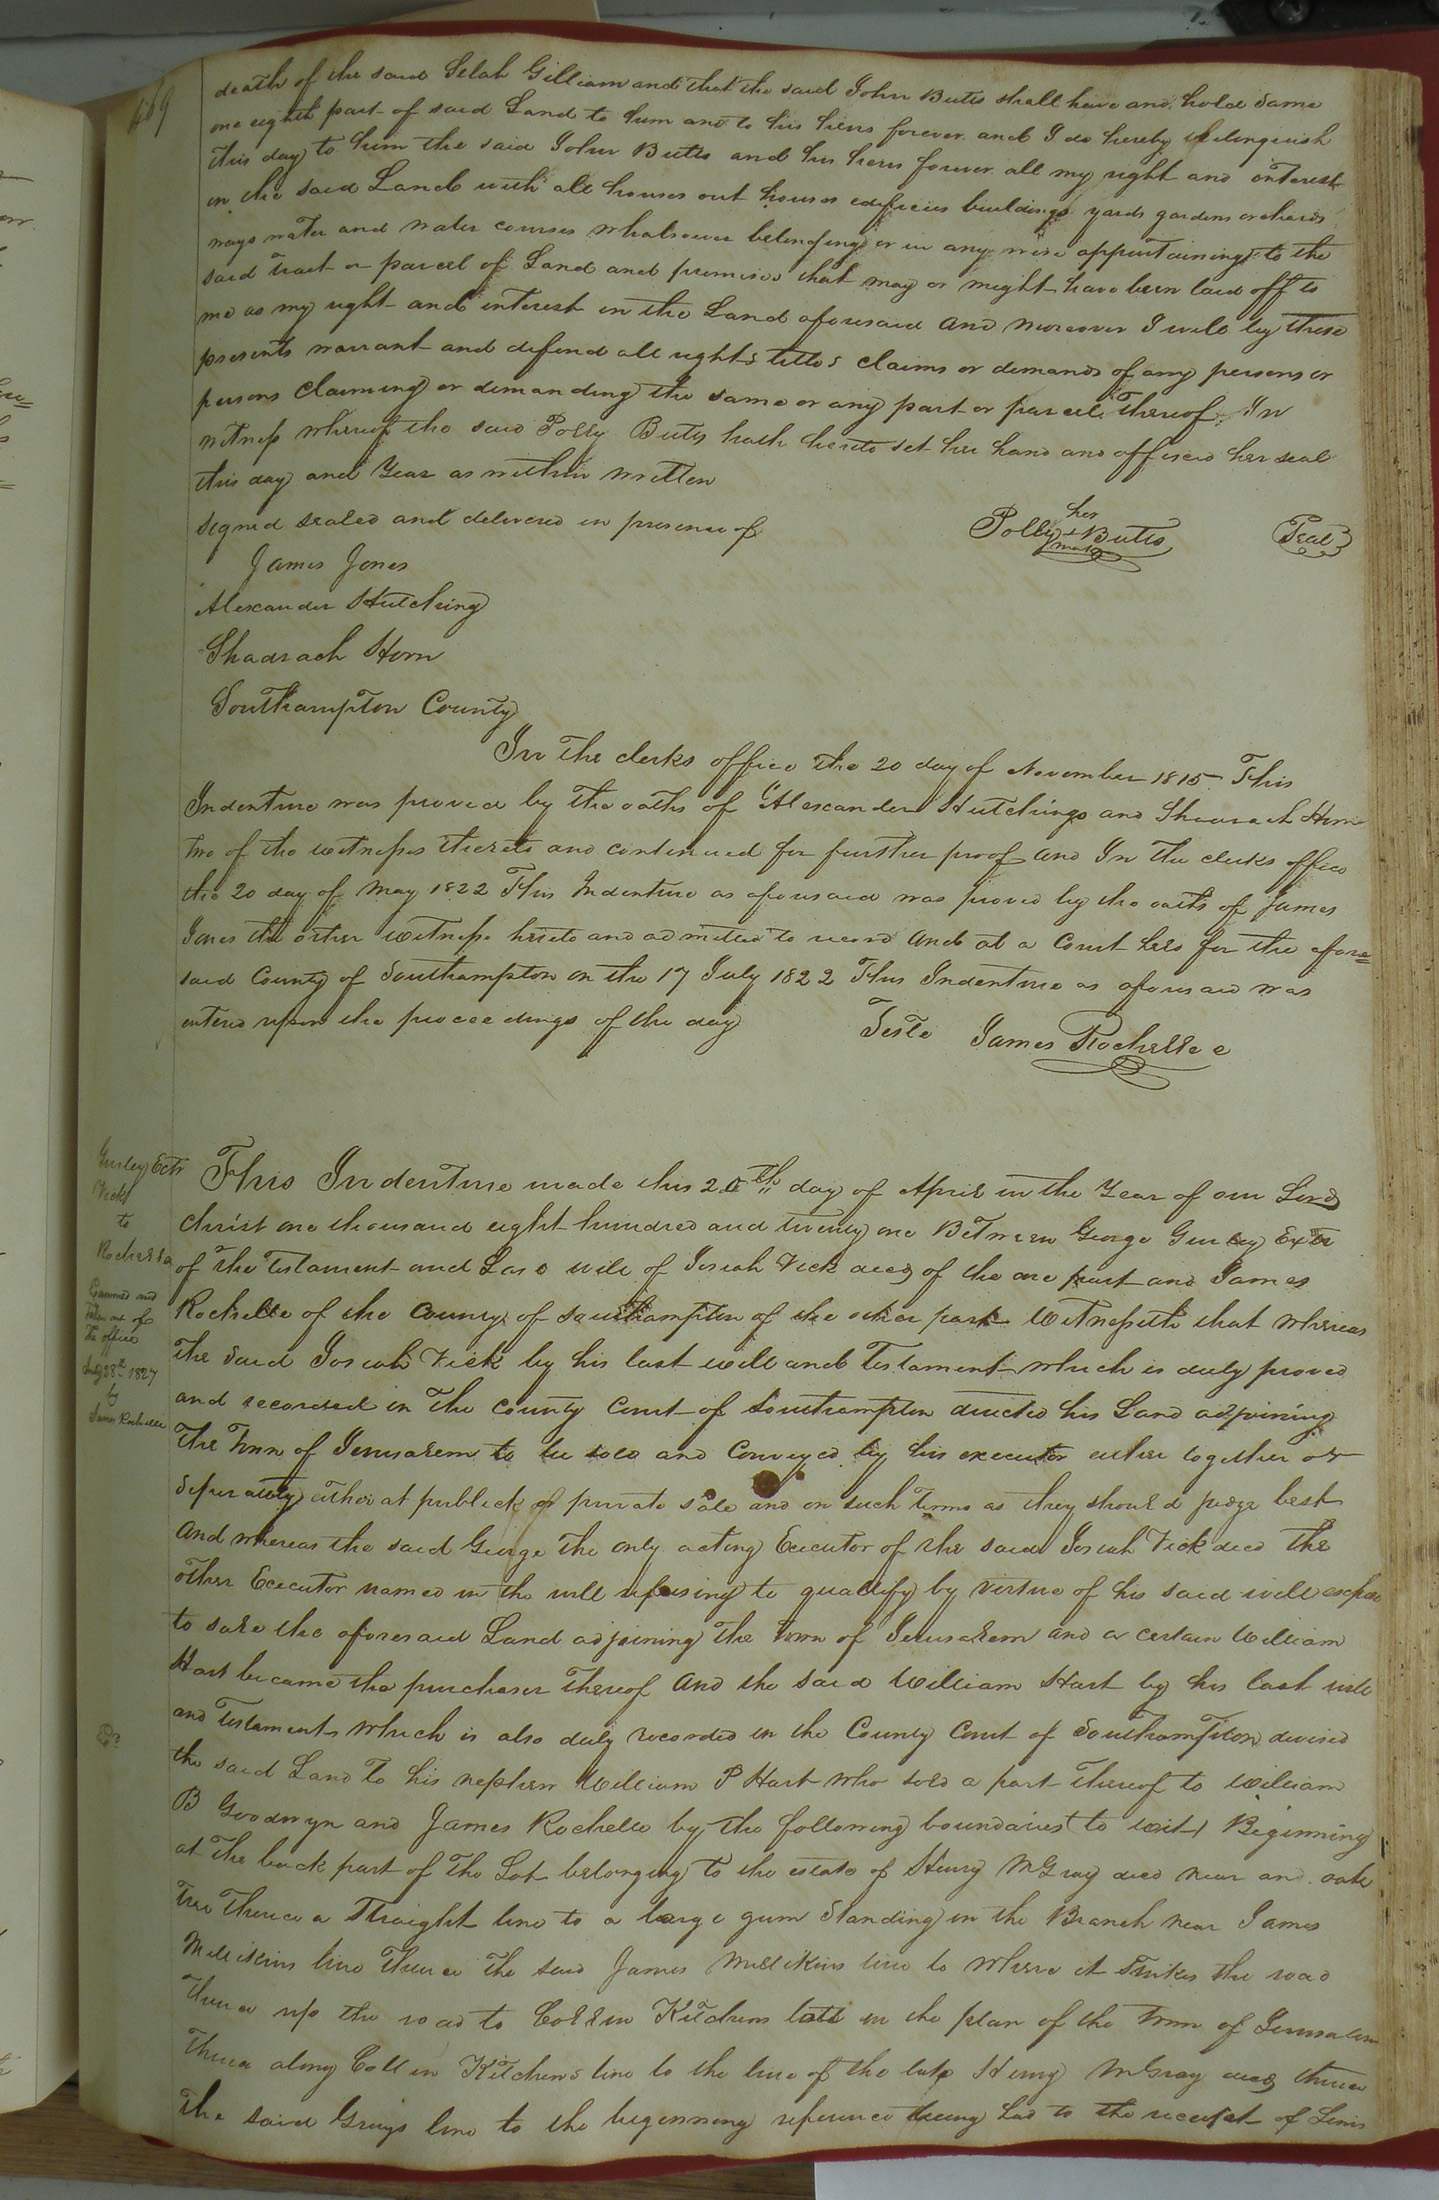 469
death of the said Selah Gilliam and that the said John Butts shall have and hold same
one eighth part of said Land to him and to his heirs forever and I do hereby relinquish
this day to him the said John Butts and his heirs forever all my right and interest
in the said Land with all houses out houses edifices buildings yards gardens orchards
ways water and water courses whatsoever belonging or in any wise appertaining to the
said tract or parcel of Land and premises that may or might have been laid off to
me as my right and interest in the Land aforesaid and moreover I will by these
presents warrant and defend all rights titles claims or demands of any persons or
persons claiming or demanding the same or any part or parcel thereof. In
witness whereof the said Polly Butts hath hereto set her hand and affixed her seal
this day and Year as within written
signed sealed and delivered in presence of
her
Polly + Butts Seal
mark
James Jones
Alexander Hutchings
Shadrach Horn
Southampton County
In the clerks office the 20 day of November 1815 This
Indenture was proved by the oaths of Alexander Hutchings and Shadrach Horn
two of the witnesses thereto and continued for further proof and In the clerks office
the 20 day of May 1822 This Indenture as aforesaid was proved by the oaths of James
Jones the other witness hereto and admitted to record and at a Court held for the afore=
said County of Southampton on the 17 July 1822 This Indenture as aforesaid was
entered upon the proceedings of the day
Teste James Rochelle c
Gurley Extr
Vicks
to
Rochelle
Examined and
taken out of
the office
July 28th 1827
by
James Rochelle
This Indenture made this 20th day of April in the Year of our Lord
Christ one thousand eight hundred and twenty one Between George Gurley Extr
of the Testament and Last will of Josiah Vick decd of the one part and James
Rochelle of the County of Southampton of the other part Witnesseth that whereas
the said Josiah Vick by his last will and Testament which is duly proved
and recorded in the County Court of Southampton directed his Land adjoining
the Town of Jerusalem to be sold and Conveyed by his executor either together or
seperately either at publick or private sale and on such terms as they should judge best
And whereas the said George the only acting Executor of the said Josiah Vick decd the
other Executor named in the will refusing to qualify by virtue of his said will expose
to sale the aforesaid Land adjoining the Town of Jerusalem and a certain William
Hart became the purchaser thereof And the said William Hart by his last will
and Testament which is also duly recorded in the County Court of Southampton devised
the said Land To his nephew William P Hart who sold a part thereof to William
B Goodwyn and James Rochelle by the following boundaries to wit, Beginning
at the back part of the Lot belonging to the estate of Henry M Gray decd near an oak
tree Thence a Straight line to a large gum Standing in the Branch near James
Millikins line Thence the said James Millikins line to where it Strikes the road
thence up the road to Collin Kitchens lots in the plan of the Town of Jerusalem
Thence along Collin Kitchens line to the line of the late Henry M Gray decd thence
the said Grays line to the beginning reference being had to the receipt of Lewis